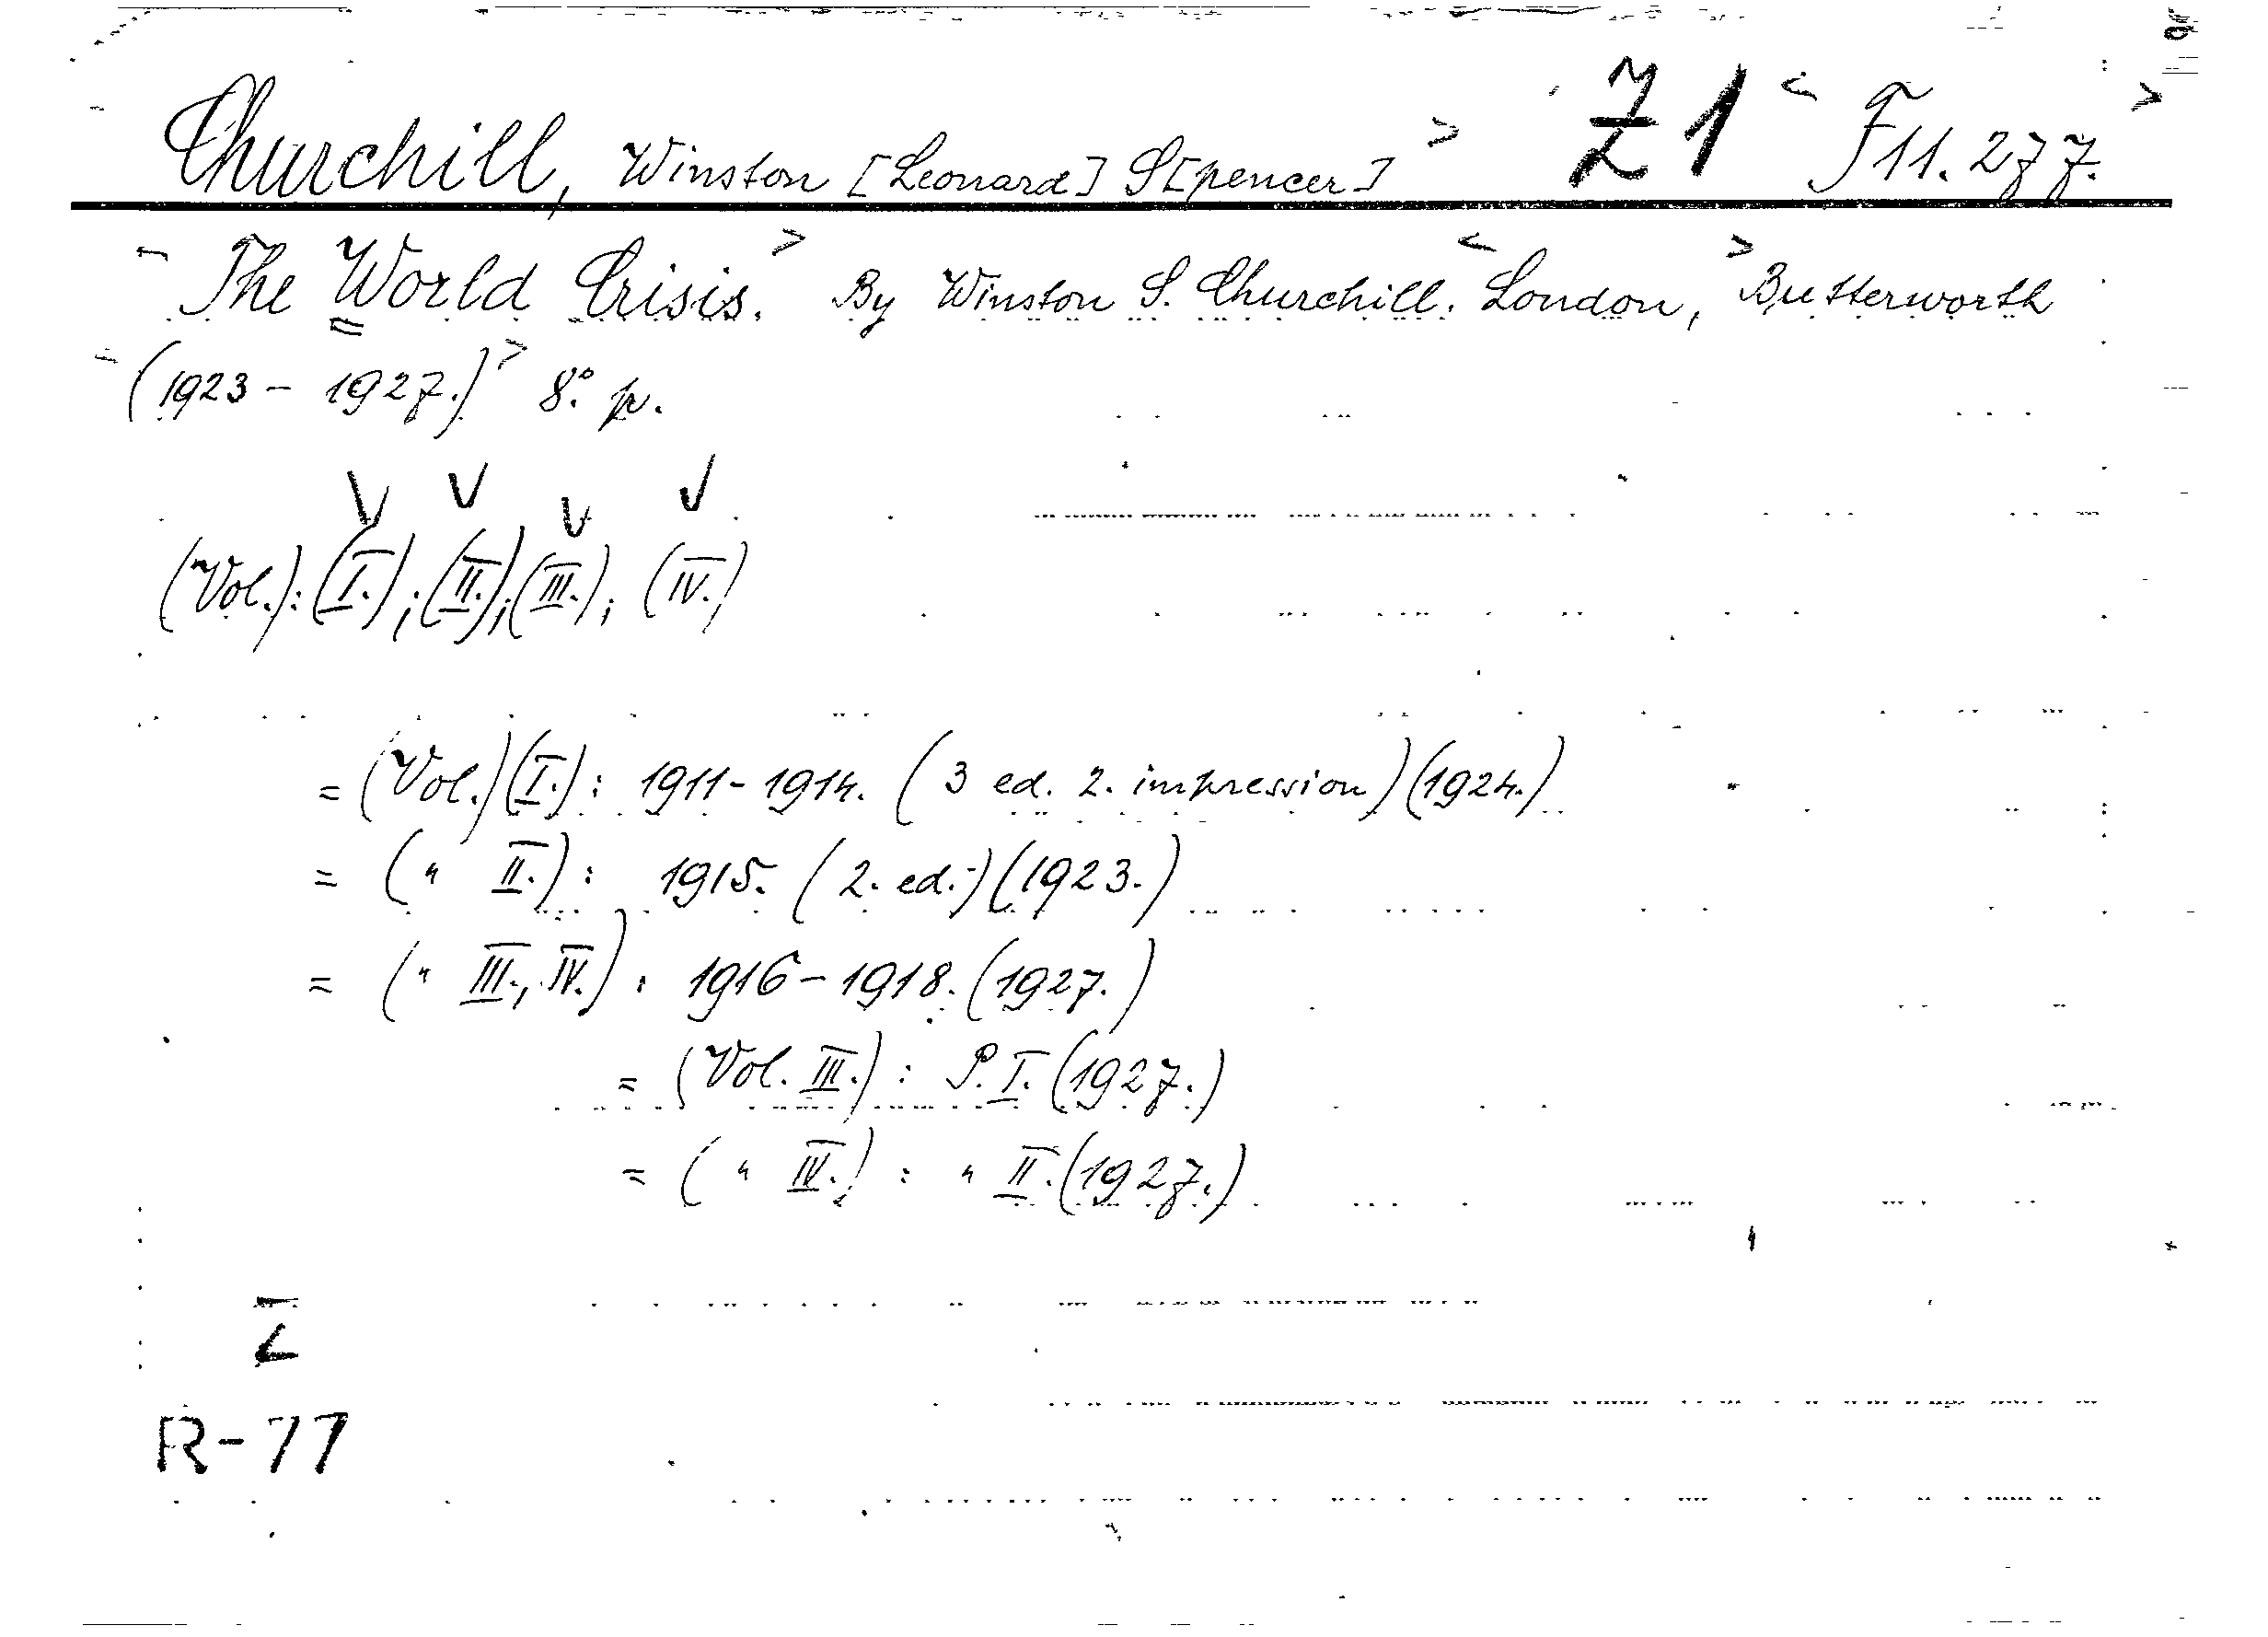 Churchill, Winston [Leonard] S[pencer] > Z1 < F11.277. >
The World Crisis. > By Winston S. Churchill. < London, > Butterworth
(1923 - 1927.) > 8° p.
(Vol.): (I.); (II.); (III.); (IV.)
= (Vol.) (I.): 1911-1914. (3 ed. 2. impression) (1924.)
= (" II.): 1915. (2. ed.) (1923.)
= (" III., IV.): 1916-1918. (1927.)
= (Vol. III.): P. I. (1927.)
= (" IV.): " II. (1927.)
R-77